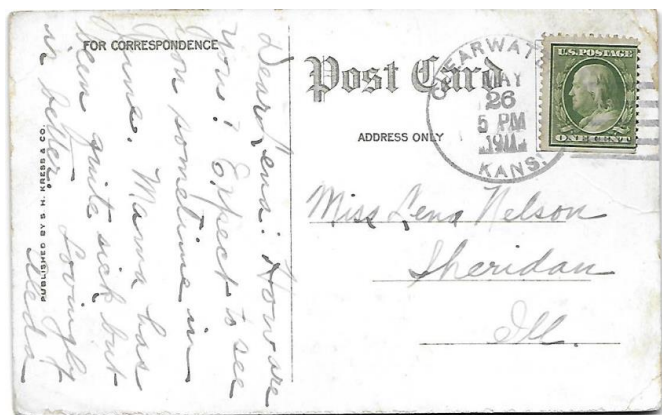 FOR CORRESPONDENCE
Dear Lena: How are
you? Expect to see
you sometime in
June. Mama has
been quite sick but
is better.
Lovingly
PUBLISHED BY S. H. KRESS & CO.
Post Card
ADDRESS ONLY
CLEARWATER
MAY
26
5 PM
1911
KANS.
U.S. POSTAGE
ONE CENT
Miss Lena Nelson
Sheridan
Ill.